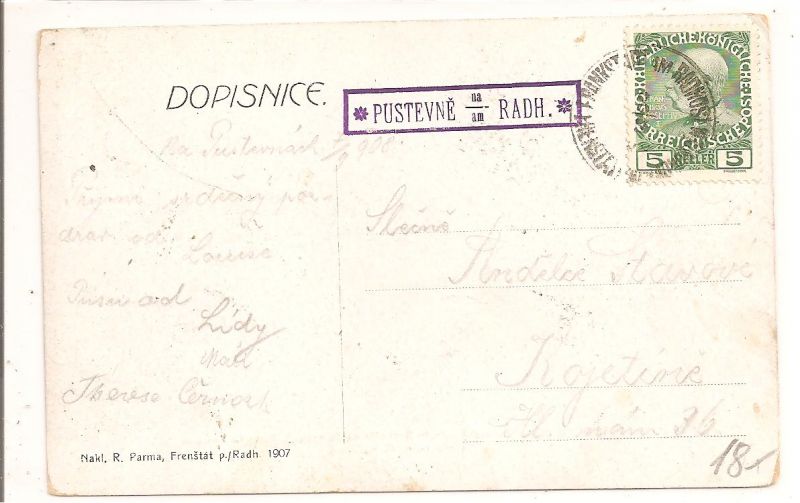 DOPISNICE.
* PUSTEVNĚ na/am RADH. *
KAISERLICHE KÖNIGLICHE
ÖSTERREICHISCHE POST
5 HELLER 5
Na Pustevnách 1/9 908
Přijmi srdečný poz-
drav od
Louise
Pusu od
Lídy
Therese
Slečně
Andělce
Kojetíně
Hl. nám 36
18-
Nakl. R. Parma, Frenštát p./Radh. 1907